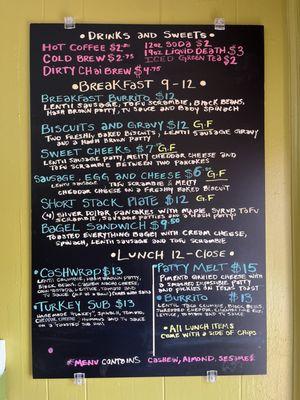 DRINKS AND SWEETS
HOT COFFEE $2
COLD BREW $2.75
DIRTY CHAI BREW $4.75
12oz SODA $2
19oz LIQUID DEATH $3
ICED GREEN TEA $2
BREAKFAST 9-12
BREAKFAST BURRITO $12
LENTIL SAUSAGE, TOFU SCRAMBLE, BLACK BEANS,
HASH BROWN PATTY, TV SAUCE AND BABY SPINACH
BISCUITS AND GRAVY $12 G.F
TWO FRESHLY BAKED BISCUITS, LENTIL SAUSAGE GRAVY
AND A HASH BROWN PATTY
SWEET CHEEKS $7 G.F
LENTIL SAUSAGE PATTY, MELTY CHEDDAR CHEESE AND
TOFU SCRAMBLE BETWEEN TWO PANCAKES
SAUSAGE, EGG AND CHEESE $6 G.F
LENTIL SAUSAGE TOFU SCRAMBLE & MELTY
CHEDDAR CHEESE ON A FRESHLY BAKED BISCUIT
SHORT STACK PLATE $12 G.F
(4) SILVER DOLLAR PANCAKES WITH MAPLE SYRUP TOFU
SCRAMBLE, SAUSAGE PATTIES AND A HASH PATTY
BAGEL SANDWICH $9.50
TOASTED EVERYTHING BAGEL WITH CREAM CHEESE,
SPINACH, LENTIL SAUSAGE AND TOFU SCRAMBLE
LUNCH 12-CLOSE
CASHWRAP $13
TURKEY SUB $13
HOUSEMADE "TURKEY", SPINACH, TOMATO,
CHEDDAR CHEESE, HUMMUS AND TV SAUCE
ON A TOASTED SUB ROLL
PATTY MELT $15
PIMENTO GRILLED CHEESE WITH A
SMASHED IMPOSSIBLE PATTY
AND PICKLES ON TEXAS TOAST
BURRITO $13
LENTIL TACO CRUMBLE, BLACK BEANS
SHREDDED CHEDDAR,
LETTUCE, TOMATO AND TV SAUCE
ALL LUNCH ITEMS
COME WITH A SIDE OF CHIPS
*MENU CONTAINS CASHEW, ALMOND, SESAME*